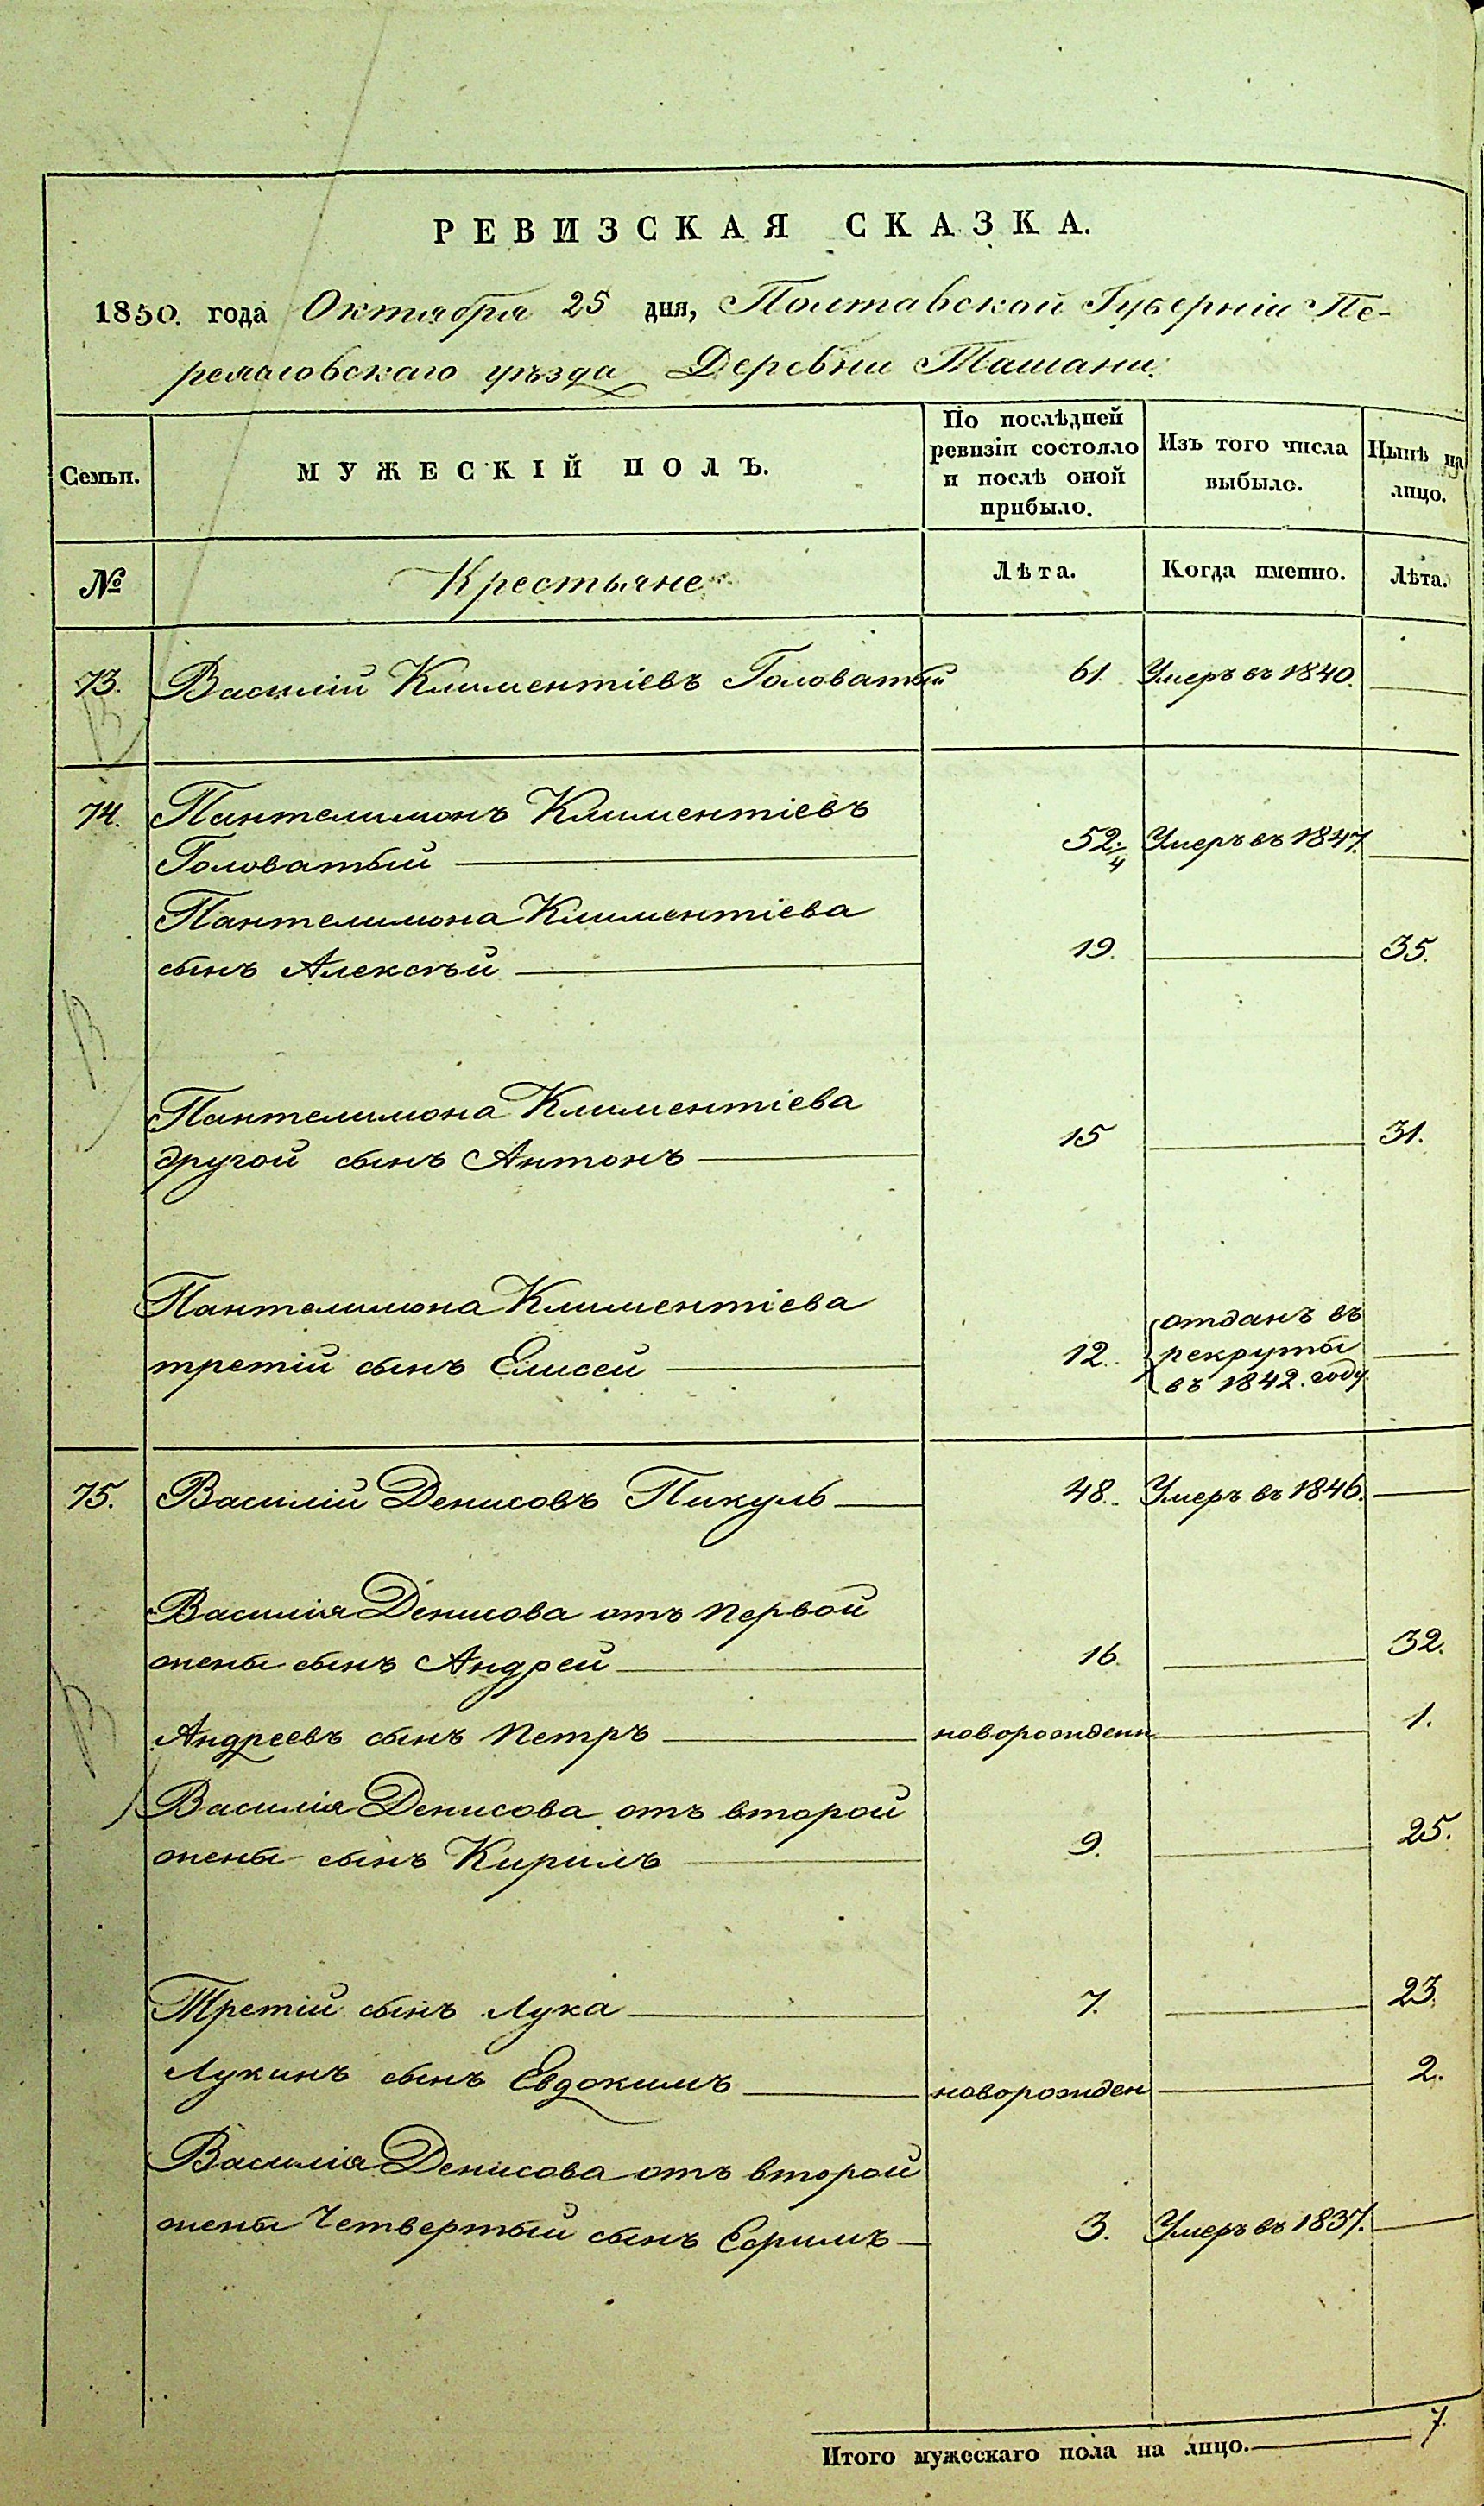 РЕВИЗСКАЯ СКАЗКА.
1850. года Октября 25 дня, Полтавской Губерніи Пе-
реяловскаго уѣзда Деревни Ташани.
Семьи. МУЖЕСКІЙ ПОЛЪ. По послѣдней ревизіи состояло и послѣ оной прибыло. Изъ того числа выбыло. Нынѣ на лицо.
№ Крестьяне Лѣта. Когда именно. Лѣта.
73. Василій Климентіевъ Головатый 61. Умеръ въ 1840.
74. Пантелимонъ Климентіевъ
Головатый 52 1/4 Умеръ въ 1847.
Пантелимона Климентіева
сынъ Алексѣй 19. 35.
Пантелимона Климентіева
другой сынъ Антонъ 15 31.
Пантелимона Климентіева
третій сынъ Елисей 12. отданъ въ
рекруты
въ 1842. году
75. Василій Денисовъ Пикуль 48. Умеръ въ 1846.
Василія Денисова отъ первой
жены сынъ Андрей 16. 32.
Андреевъ сынъ Петръ новорожденн 1.
Василія Денисова отъ второй
жены сынъ Кирилъ 9. 25.
Третій сынъ Лука 7. 23.
Лукинъ сынъ Евдокимъ новорожден 2.
Василія Денисова отъ второй
жены Четвертый сынъ 3. Умеръ въ 1837.
Итого мужескаго пола на лицо. 7.